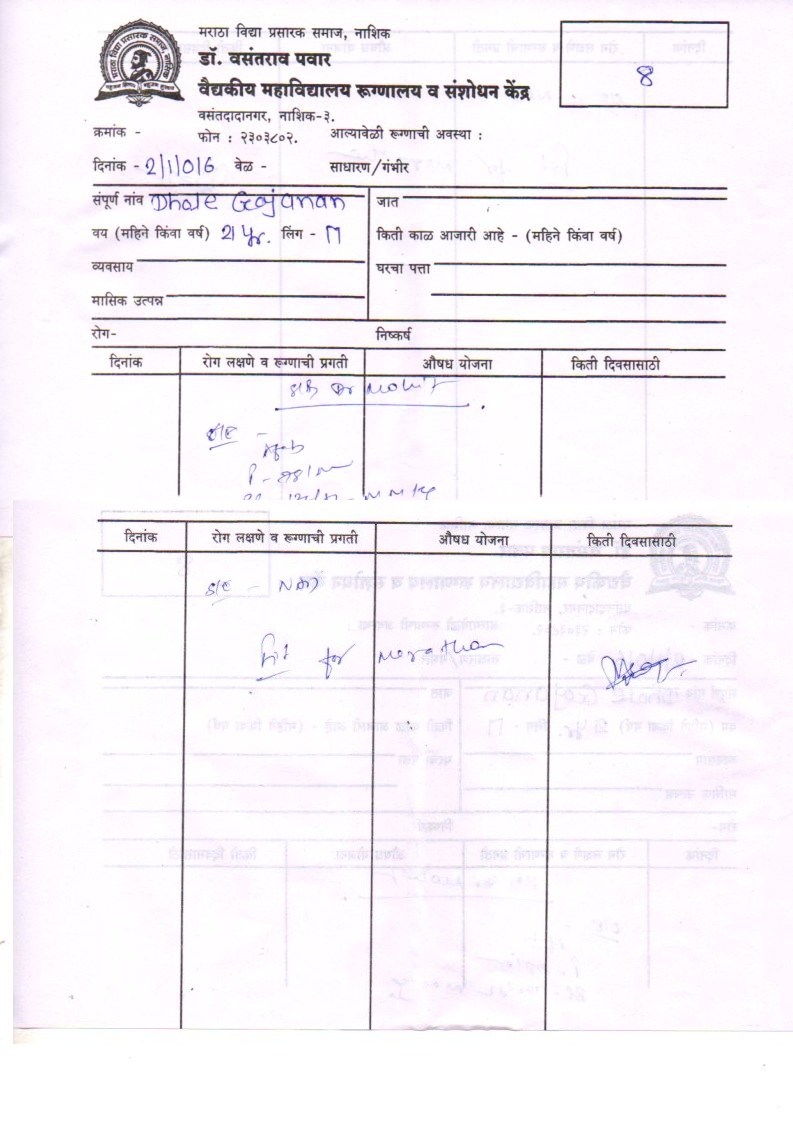 मराठा विद्या प्रसारक समाज, नाशिक
डॉ. वसंतराव पवार
वैद्यकीय महाविद्यालय रूग्णालय व संशोधन केंद्र
वसंतदादानगर, नाशिक-३.
8
क्रमांक - फोन : २३०३८०२. आल्यावेळी रूग्णाची अवस्था :
दिनांक - 2/1/016 वेळ - साधारण/गंभीर
संपूर्ण नांव Dhale Gajanan जात
वय (महिने किंवा वर्ष) 21 yr. लिंग - M किती काळ आजारी आहे - (महिने किंवा वर्ष)
व्यवसाय घरचा पत्ता
मासिक उत्पन्न
रोग- निष्कर्ष
दिनांक रोग लक्षणे व रूग्णाची प्रगती औषध योजना किती दिवसासाठी
Dr Mohit
O/E -
Afeb
P -
दिनांक रोग लक्षणे व रूग्णाची प्रगती औषध योजना किती दिवसासाठी
S/E - NAD
Fit for Marathon